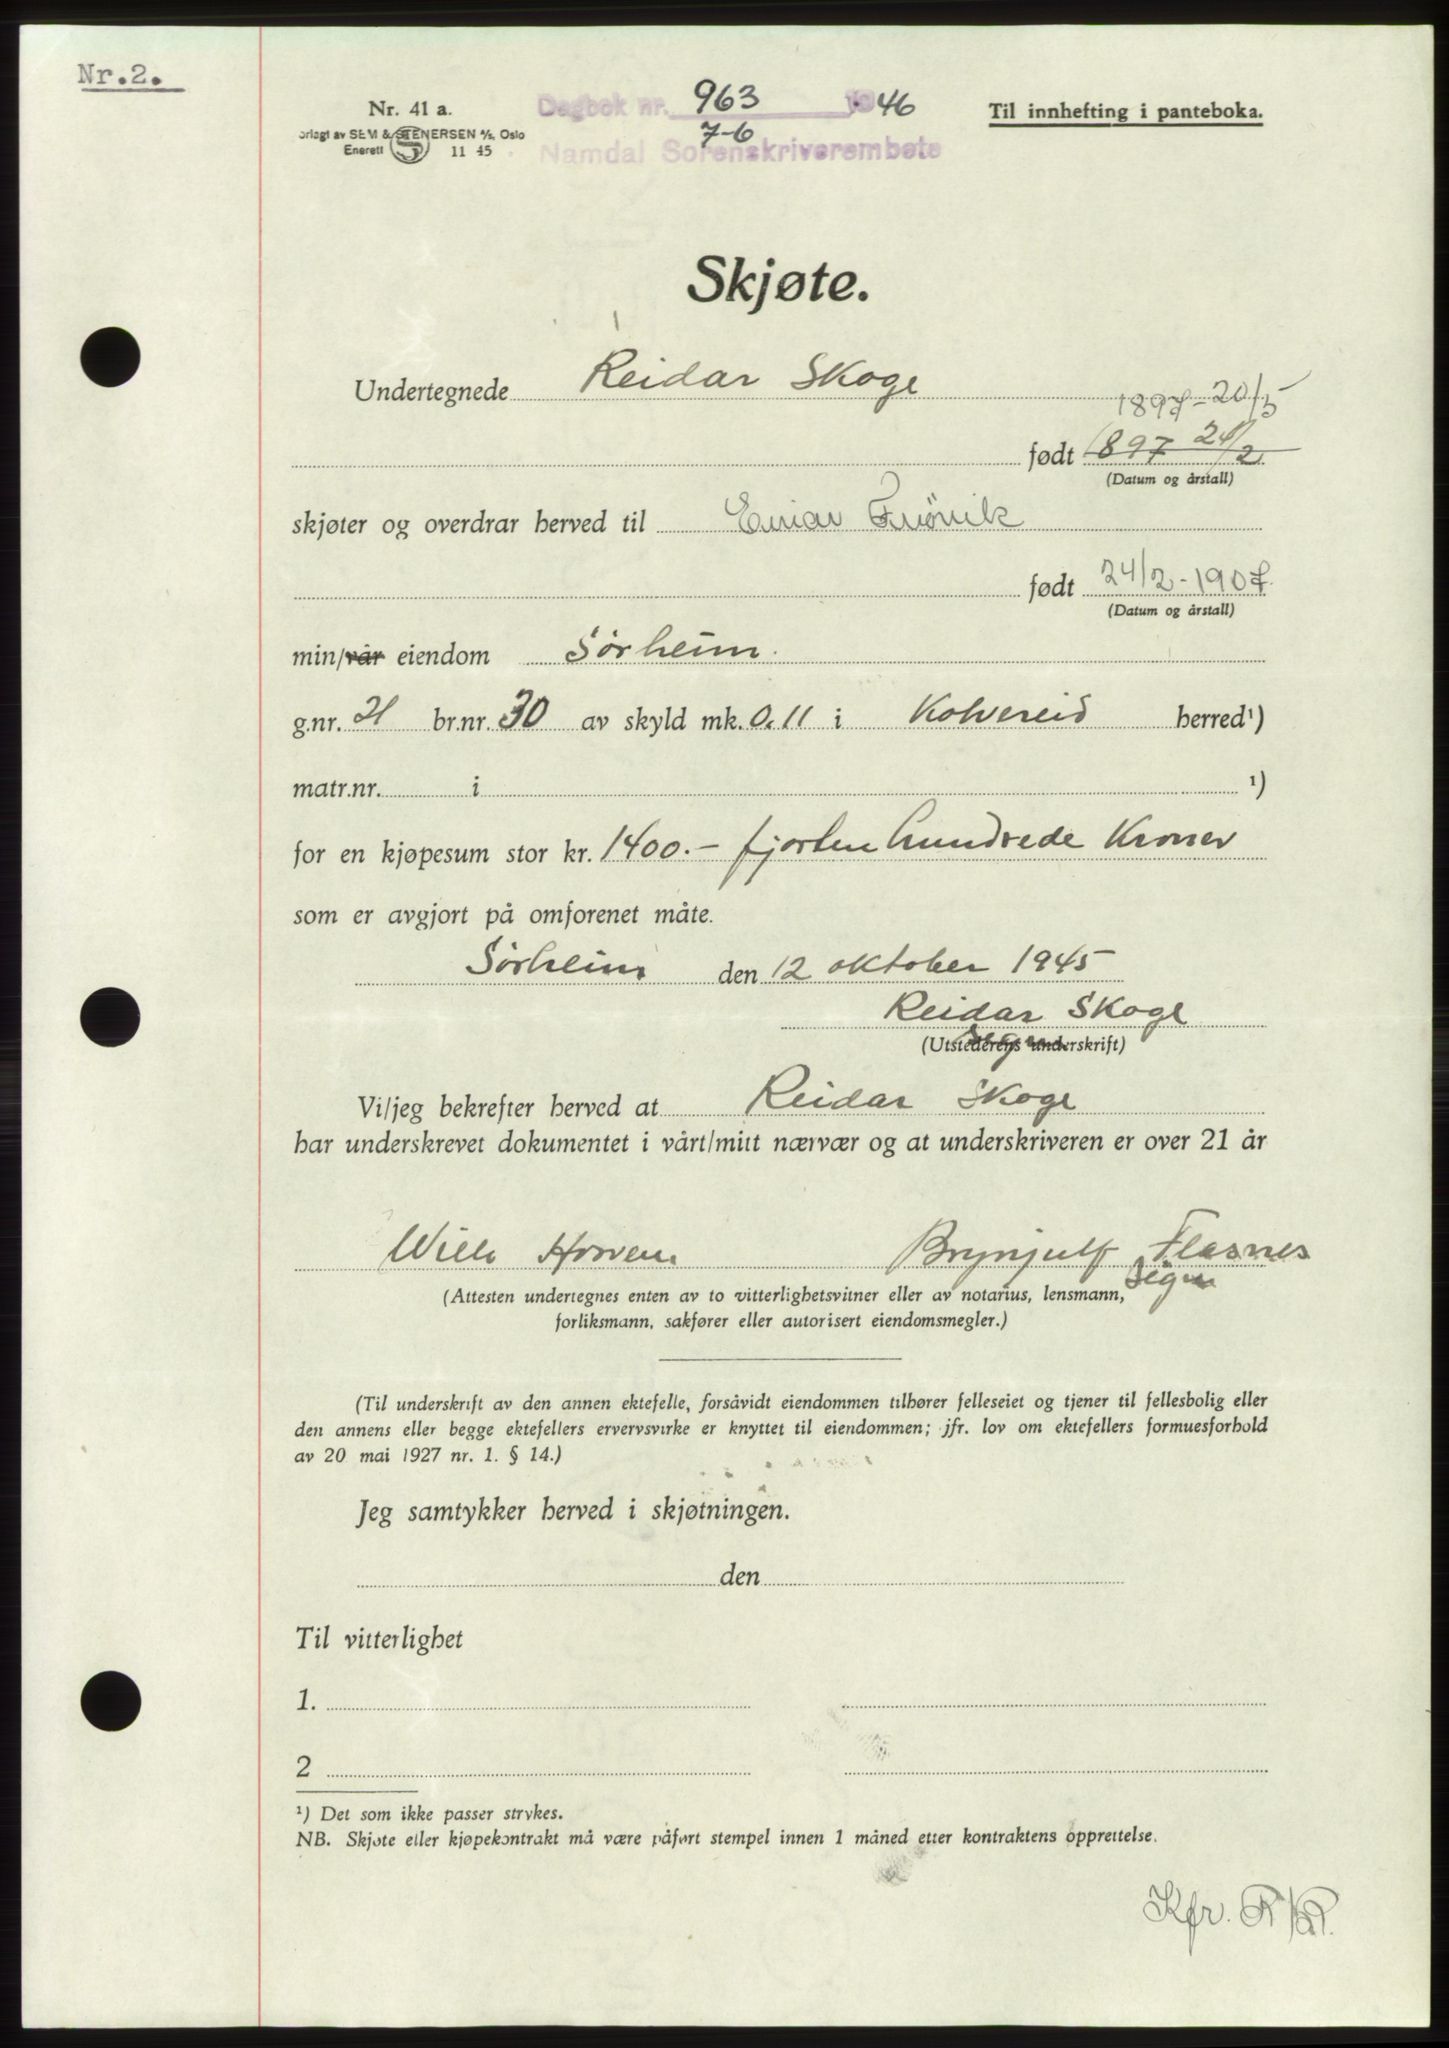 Nr.2.
Nr. 41 a.
orlagt av SEM & STENERSEN A/S, Oslo
Enerett S 11 45
Dagbok nr. 963 1946
7-6
Namdal Sorenskriverembete
Til innhefting i panteboka.
Skjøte.
Undertegnede Reidar Skoge
1897-20/5
født 1897 24/2
(Datum og årstall)
skjøter og overdrar herved til Einar
født 24/2-1907.
(Datum og årstall)
min/vår eiendom Sørheim.
g.nr. 21 br.nr. 30 av skyld mk. 0.11 i Kolvereid herred¹)
matr.nr. i ¹)
for en kjøpesum stor kr. 1400.- fjorten hundrede Kroner
som er avgjort på omforenet måte.
Sørheim den 12 oktober 1945
Reidar Skoge
(Utstederens underskrift)
Vi/jeg bekrefter herved at Reidar Skoge
har underskrevet dokumentet i vårt/mitt nærvær og at underskriveren er over 21 år
Brynjulf Flasnes
sign
(Attesten undertegnes enten av to vitterlighetsvitner eller av notarius, lensmann,
forliksmann, sakfører eller autorisert eiendomsmegler.)
(Til underskrift av den annen ektefelle, forsåvidt eiendommen tilhører felleseiet og tjener til fellesbolig eller
den annens eller begge ektefellers ervervsvirke er knyttet til eiendommen; jfr. lov om ektefellers formuesforhold
av 20 mai 1927 nr. 1. § 14.)
Jeg samtykker herved i skjøtningen.
den
Til vitterlighet
1.
2
¹) Det som ikke passer strykes.
NB. Skjøte eller kjøpekontrakt må være påført stempel innen 1 måned etter kontraktens opprettelse.
Kfr.